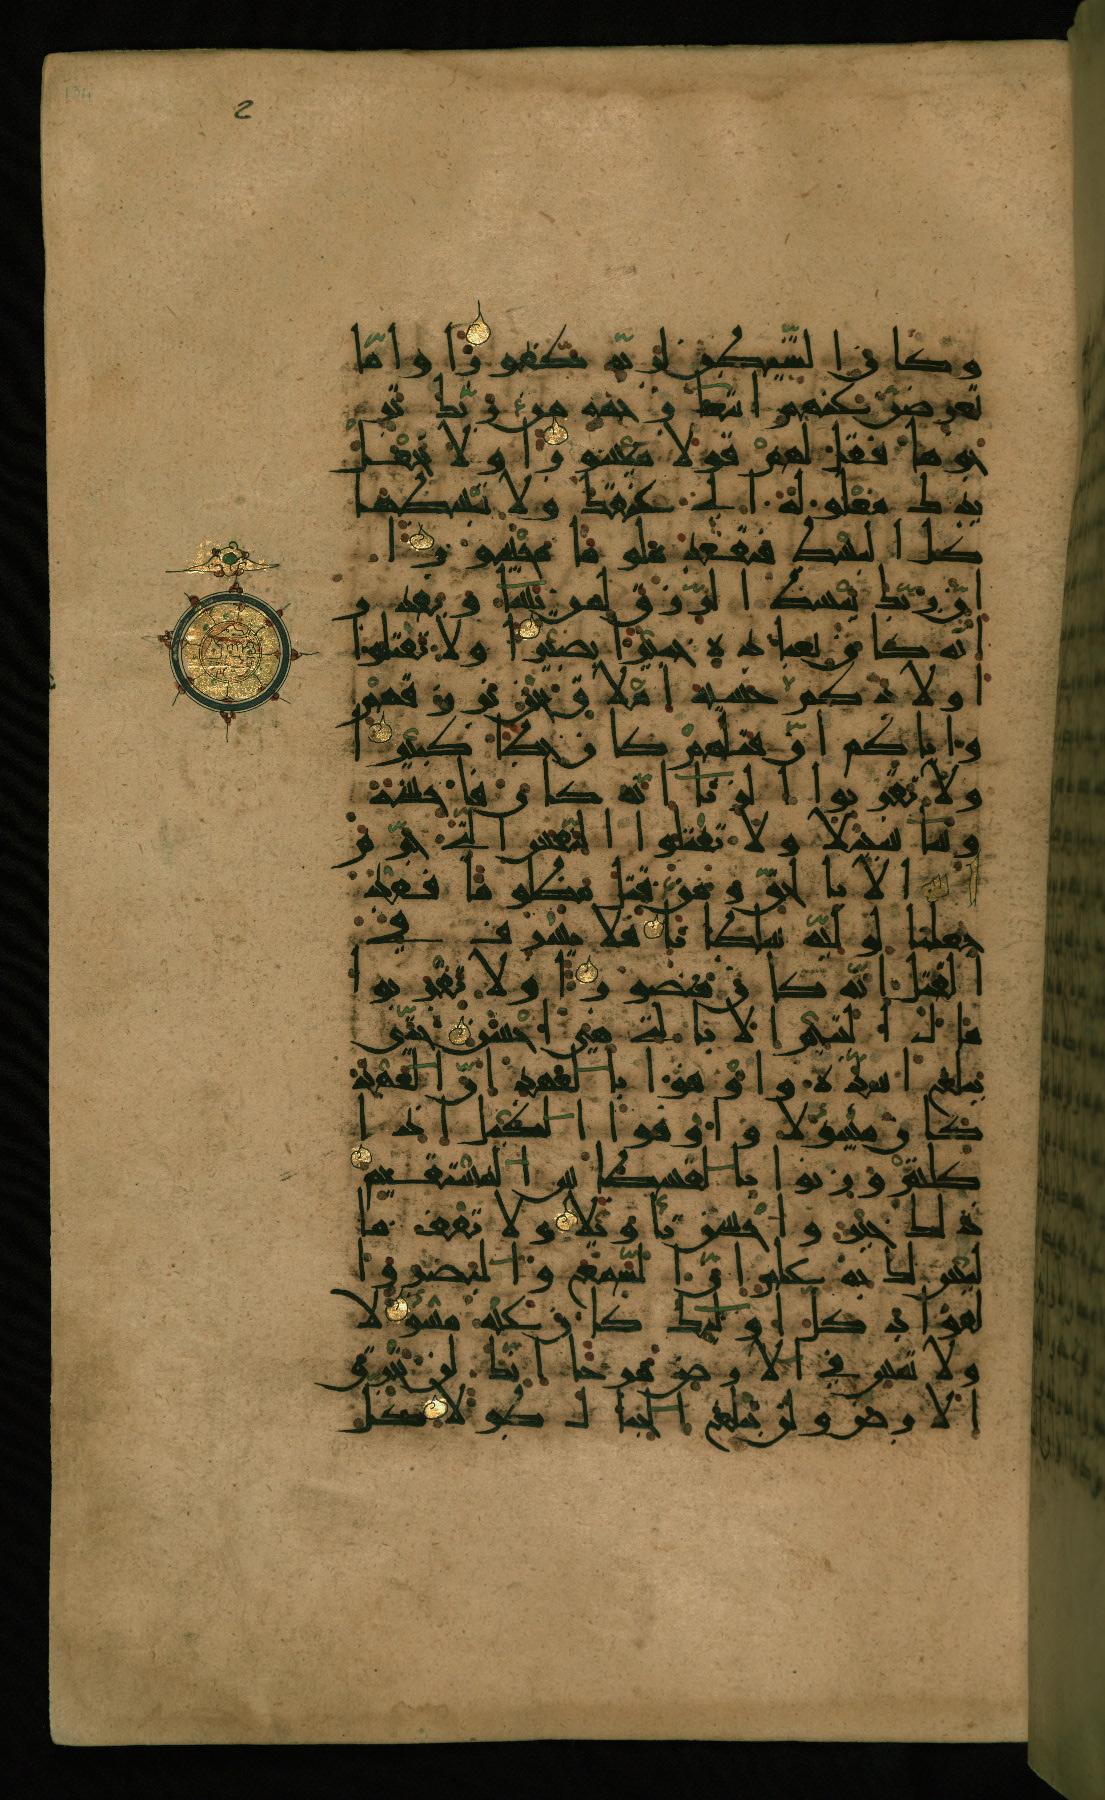 134
2
وكان الشيطن لربه كفورا واما
تعرضن عنهم ابتغا رحمة من ربك تر
جوها فقل لهم قولا ميسورا ولا تجعل
يدك مغلولة الى عنقك ولا تبسطها
كل البسط فتقعد ملوما محسورا
ان ربك يبسط الرزق لمن يشا ويقدر
انه كان بعباده خبيرا بصيرا ولا تقتلوا
اولادكم خشية املاق نحن نرزقهم
واياكم ان قتلهم كان خطا كبيرا
ولا تقربوا الزنا انه كان فاحشة
وسا سبيلا ولا تقتلوا النفس التي حرم
الله الا بالحق ومن قتل مظلوما فقد
جعلنا لوليه سلطانا فلا يسرف في
القتل انه كان منصورا ولا تقربوا
مال اليتيم الا بالتي هي احسن حتى
يبلغ اشده واوفوا بالعهد ان العهد
كان مسولا واوفوا الكيل اذا
كلتم وزنوا بالقسطاس المستقيم
ذلك خير واحسن تاويلا ولا تقف ما
ليس لك به علم ان السمع والبصر وا
لفواد كل اوليك كان عنه مسولا
ولا تمش في الارض مرحا انك لن تخرق
الارض ولن تبلغ الجبال طولا كل